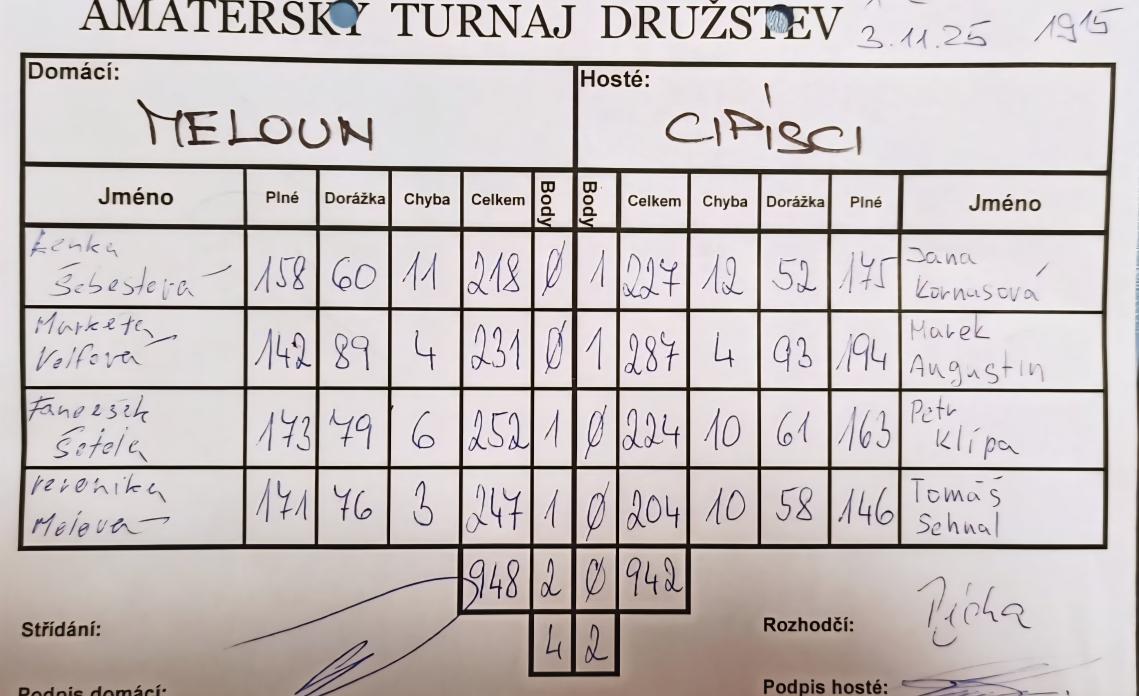 AMATÉRSKÝ TURNAJ DRUŽSTEV 3.11.25 1915
Domácí: Hosté:
MELOUN CIPÍSCI
Jméno Plné Dorážka Chyba Celkem Body Body Celkem Chyba Dorážka Plné Jméno
Lenka Jana
Šebestová 158 60 11 218 0 1 227 12 52 175 Kornusová
Markéta Marek
Volfová 142 89 4 231 0 1 287 4 93 194 Augustin
Petr
173 79 6 252 1 0 224 10 61 163 Klípa
Veronika Tomáš
171 76 3 247 1 0 204 10 58 146 Sehnal
948 2 0 942
Střídání: Rozhodčí:
4 2
Podpis domácí: Podpis hosté: